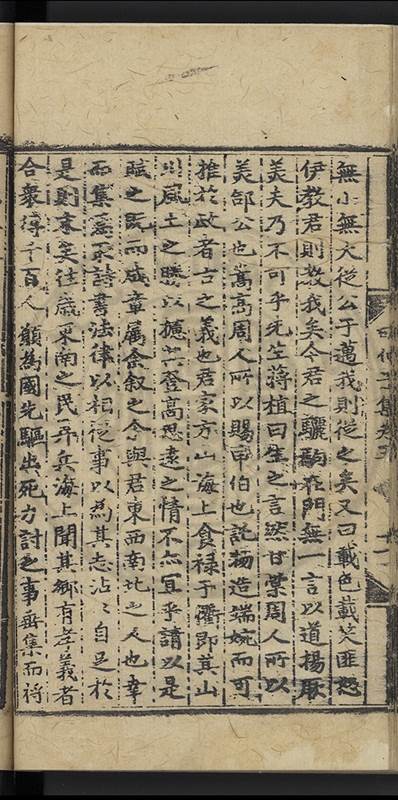 無小無大從公于邁我則從之矣又曰載色載笑匪怒
伊教君則教我矣今君之驪駒在門無一言以道揚厥
美夫乃不可乎先生蔣植曰生之言然甘棠周人所以
美郃公也嵩高周人所以賜申伯也託揚造端婉而可
推於政者古之義也君家方山海上食禄于衢即其山
川風土之勝以摅其登高思遠之情不亦宜乎請以是
賦之既而成章属余叙之余與君東西南北之人也幸
而集焉取詩書法律以相從事以為其志沾沾自足於
是則末矣往歲東南之民弄兵海上聞其鄉有孝義者
合衆得千百人顚為國先驅出死力討之事毋集而将